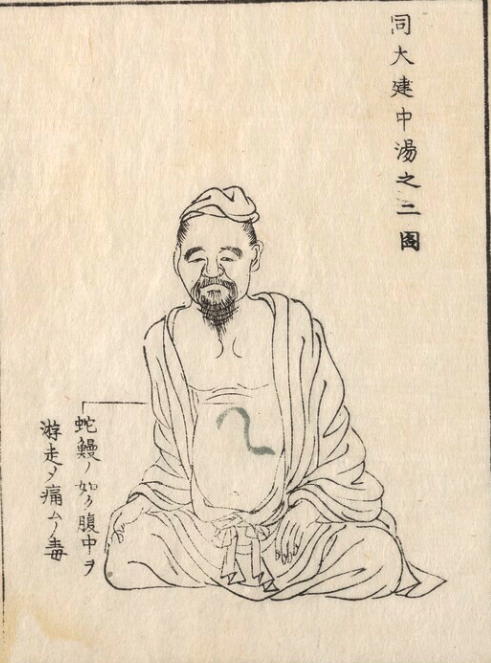 同大建中湯之二圖
蛇鰻ノ如ク腹中ヲ
游走〆痛ムノ毒